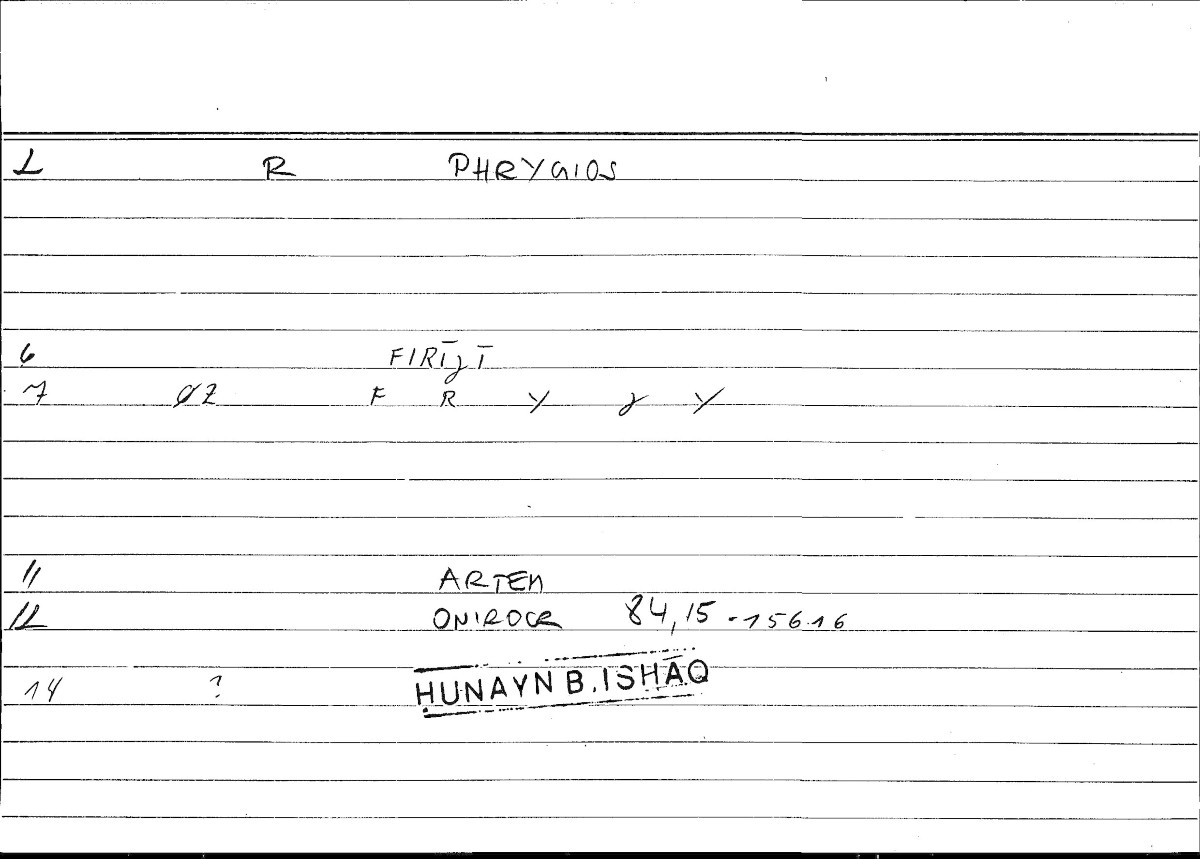 L R PHRYGIOS
6 FIRĪǧĪ
7 ØZ F R Y ǧ Y
11 ARTEM
12 ONIROCR 84,15 - 156 16
14 ? HUNAYN B. ISHAQ